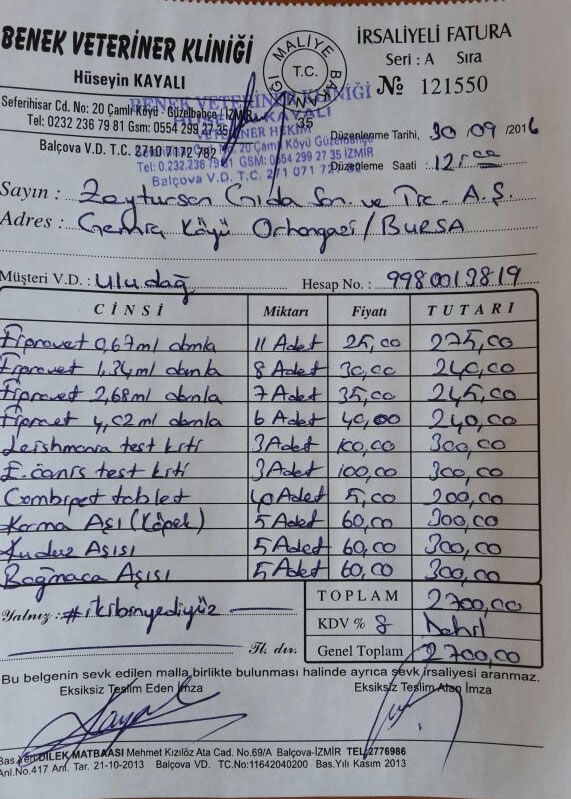 BENEK VETERİNER KLİNİĞİ
Hüseyin KAYALI
Seferihisar Cd. No: 20 Çamlı Köyü - Güzelbahçe / İZMİR
Tel: 0232 236 79 81 Gsm: 0554 299 27 35
Balçova V.D. T.C. 2710 7172 782
MALİYE BAKANLIĞI
T.C.
35
İRSALİYELİ FATURA
Seri : A Sıra
№ 121550
BENEK VETERİNER KLİNİĞİ
KAYALI
VETERİNER HEKİM
20 Çamlı Köyü - Güzelbahçe / İZMİR
Tel: 0.232.236 79 81 GSM: 0554 299 27 35 İZMİR
Balçova V.D. T.C. 271 071 72
Düzenlenme Tarihi, 30/09/2016
Düzenleme Saati : 12.00
Sayın : Zeytursan Gıda San. ve Tic. A.Ş.
Adres : Gemiç Köyü Orhangazi / BURSA
Müşteri V.D. : Uludağ Hesap No. : 9980013819
CİNSİ Miktarı Fiyatı TUTARI
Fiprovet 0,67ml damla 11 Adet 25,00 275,00
Fiprovet 1,34ml damla 8 Adet 30,00 240,00
Fiprovet 2,68ml damla 7 Adet 35,00 245,00
Fiprovet 4,02ml damla 6 Adet 40,00 240,00
Leishmania test kiti 3 Adet 100,00 300,00
E.canis test kiti 3 Adet 100,00 300,00
Combipet tablet 40 Adet 5,00 200,00
Karma Aşı (Köpek) 5 Adet 60,00 300,00
Kuduz Aşısı 5 Adet 60,00 300,00
Boğmaca Aşısı 5 Adet 60,00 300,00
Yalnız : #ikibinyediyüz
TOPLAM 2700,00
KDV % 8 Dahil
Tl. dır. Genel Toplam 2700,00
Bu belgenin sevk edilen malla birlikte bulunması halinde ayrıca sevk irsaliyesi aranmaz.
Eksiksiz Teslim Eden İmza Eksiksiz Teslim Alan İmza
Bas. Yeri DİLEK MATBAASI Mehmet Kızılöz Ata Cad. No.69/A Balçova-İZMİR TEL:2776986
Anl.No.417 Anl. Tar. 21-10-2013 Balçova VD. TC.No:11642040200 Bas.Yılı Kasım 2013